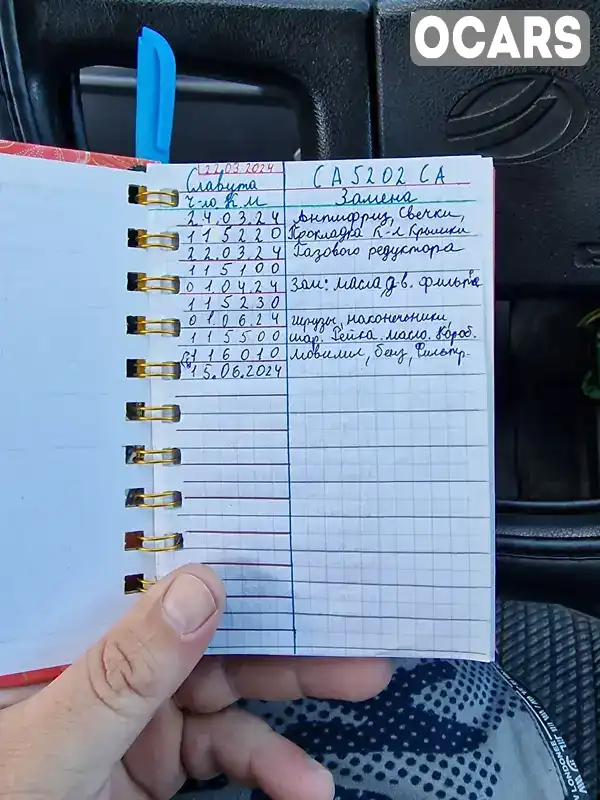 OCARS
22.03.2024
Славута СА 5202 СА
Ч-ло К.М Замена
24.03.24 Антифриз, Свечки,
115220 Прокладка К-л Крышки
22.03.24 Газового редуктора
115100
010424 Зам: масла, дв. фильтра
115230
01.06.24 Шрузы, наконечники,
115500 шар. Рейка. масло. Короб.
116010 Мовилил, бенз, Фильтр-
15.06.2024